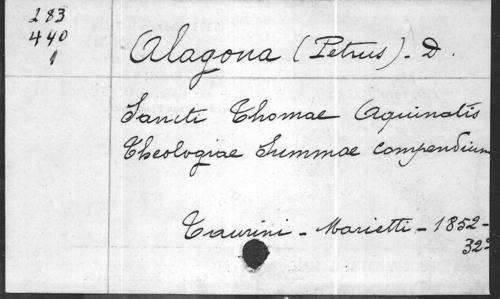 283
440
1
Alagona (Petrus). D.
Sancti Thomae Aquinatis
Theologiae Summae compendium
Taurini - Marietti - 1852 -
32º